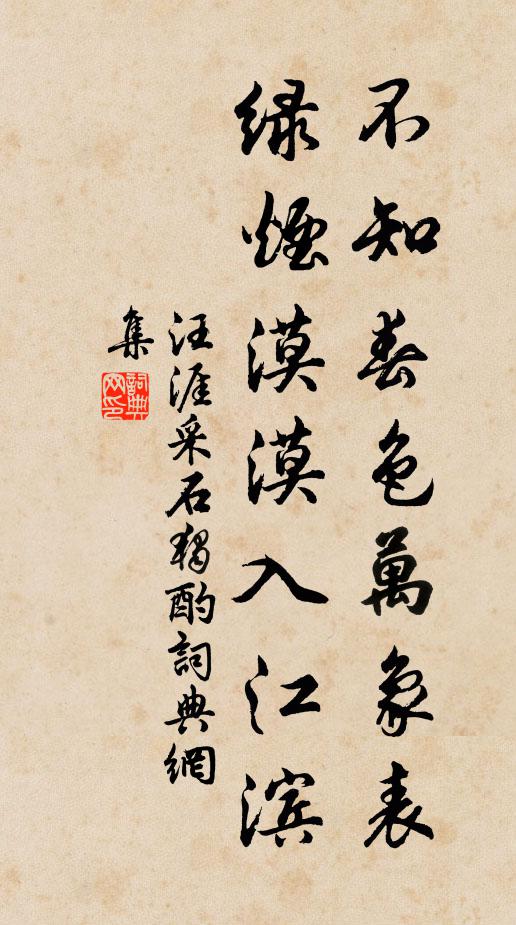 不知春色萬象表
绿煙漠漠入江滨
汪涯采石獨酌詞典網
集
詞典網印